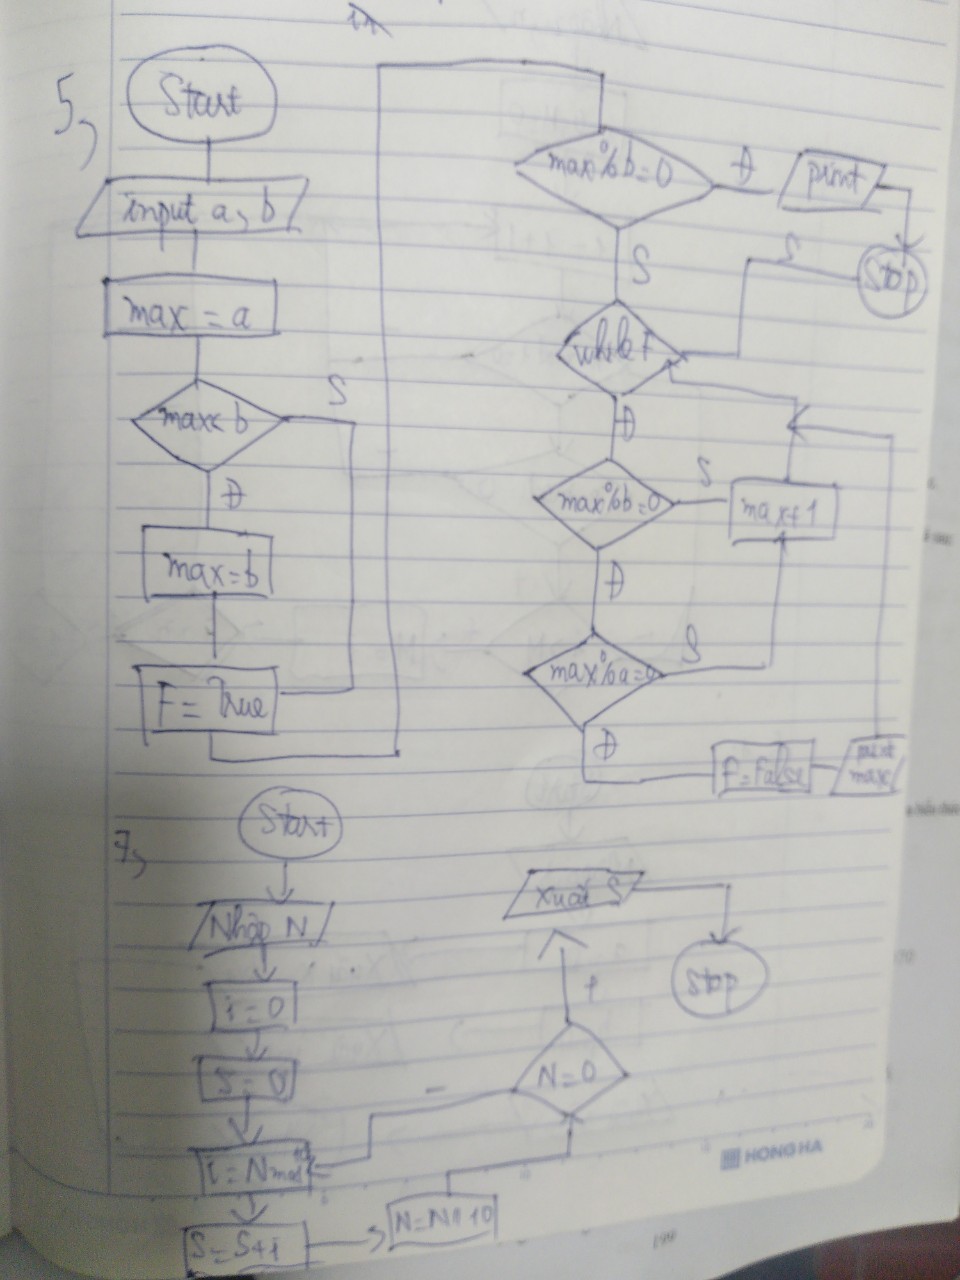 5,
Start
input a, b
max = a
max < b
S
Đ
max = b
F = True
max % b = 0
Đ
print
Stop
S
while F
S
Đ
max % b = 0
S
max + 1
Đ
max % a = 0
S
Đ
F = False
print
max
7,
Start
Nhập N
i = 0
S = 0
i = N mod 10
S = S + i
N = N // 10
N = 0
-
+
Xuất S
Stop
HONG HA
199